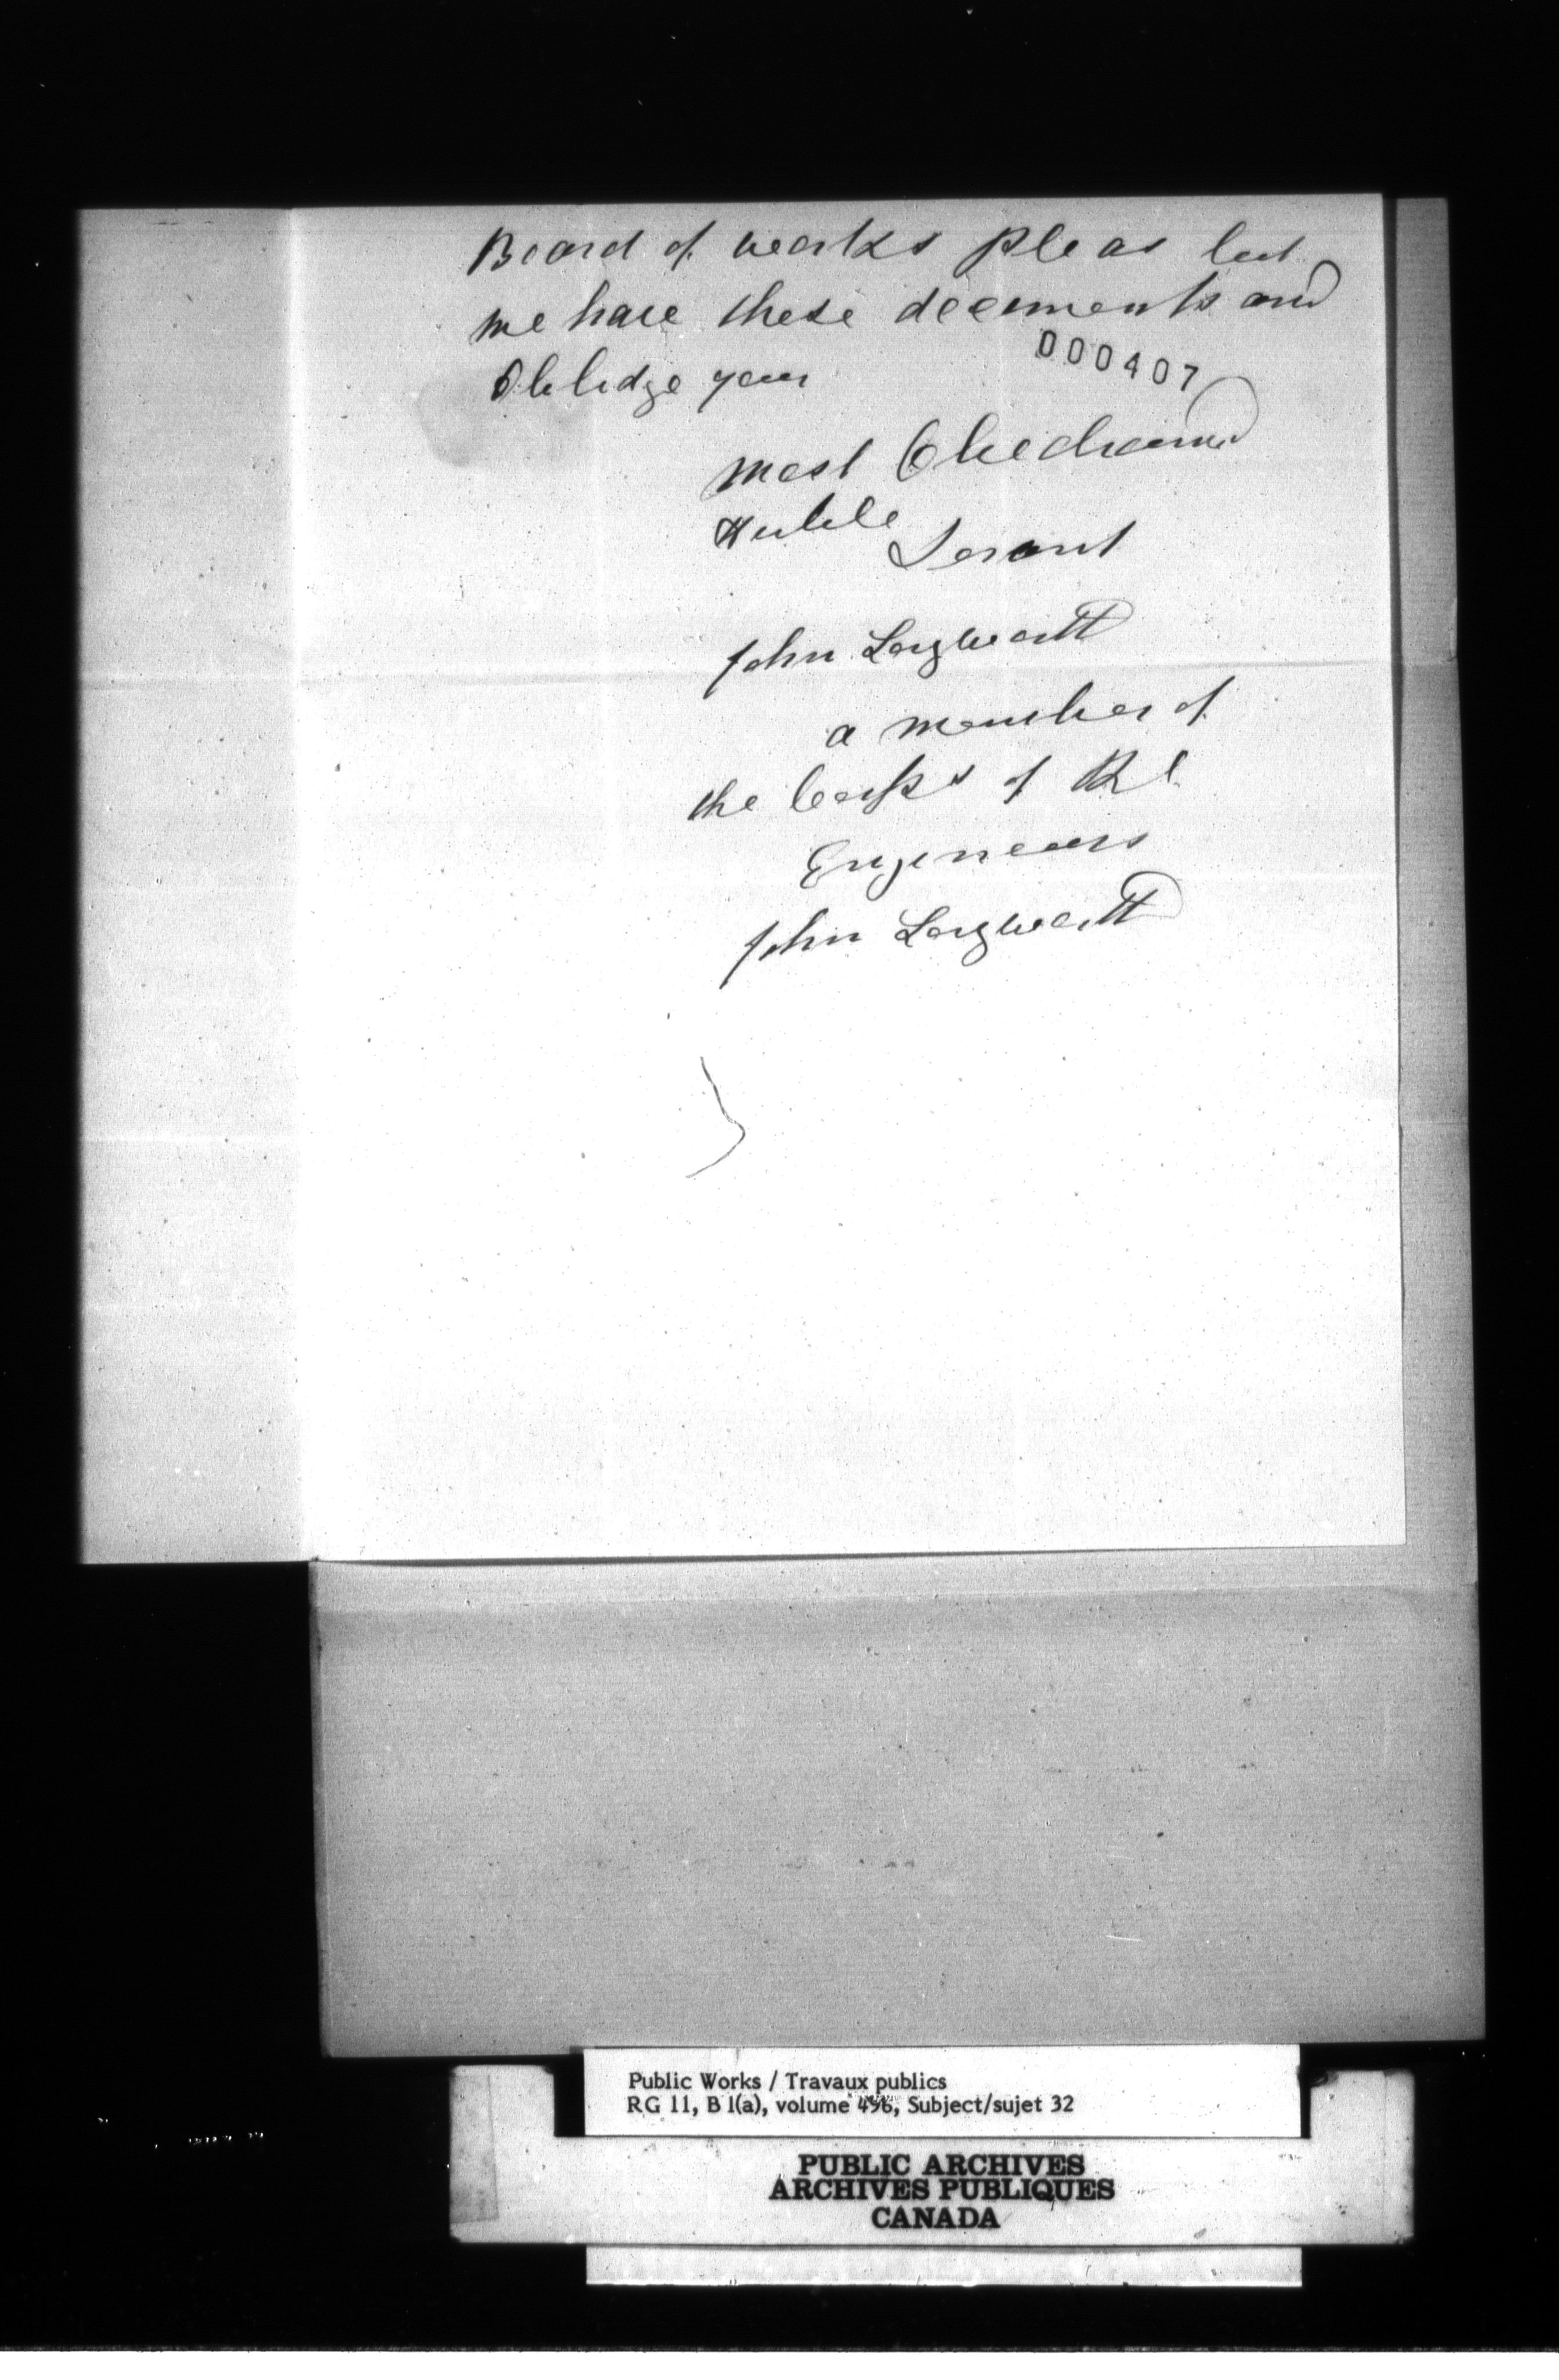 Board of works pleas let
me have these documents and
000407
Oblidge your
most Obediant
Huble
Servant
John Longworth
a member of
the Corps of Rl
Engineers
John Longworth
Public Works / Travaux publics
RG 11, B 1(a), volume 496, Subject/sujet 32
PUBLIC ARCHIVES
ARCHIVES PUBLIQUES
CANADA